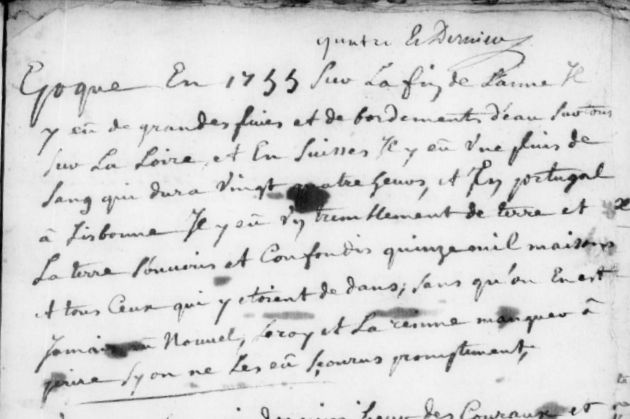 quatre et Dernier
Epoque En 1755 Sur La fin de L'anne Il
y eu de grandes pluies et de bordements d'eau Surtous
Sur La Loire, et En Suisses Il y eu Vne pluis de
Sang qui dura Vingt quatre heures, et En portugal
à Lisbonne Il y eu Vn tremblement de terre et
La terre Souvris et Confondis quinze mil maisons
et tous Ceux qui y etoient de dans, sans qu'on En est
Jamais Nouvel, Le roy et La reinne manquer à
perire Sy on ne Les eu Secourus promptement,
des Couraux et